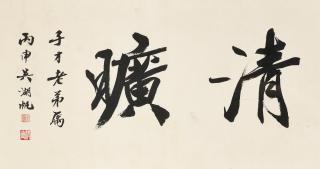 清曠
子才老弟屬
丙申吳湖帆